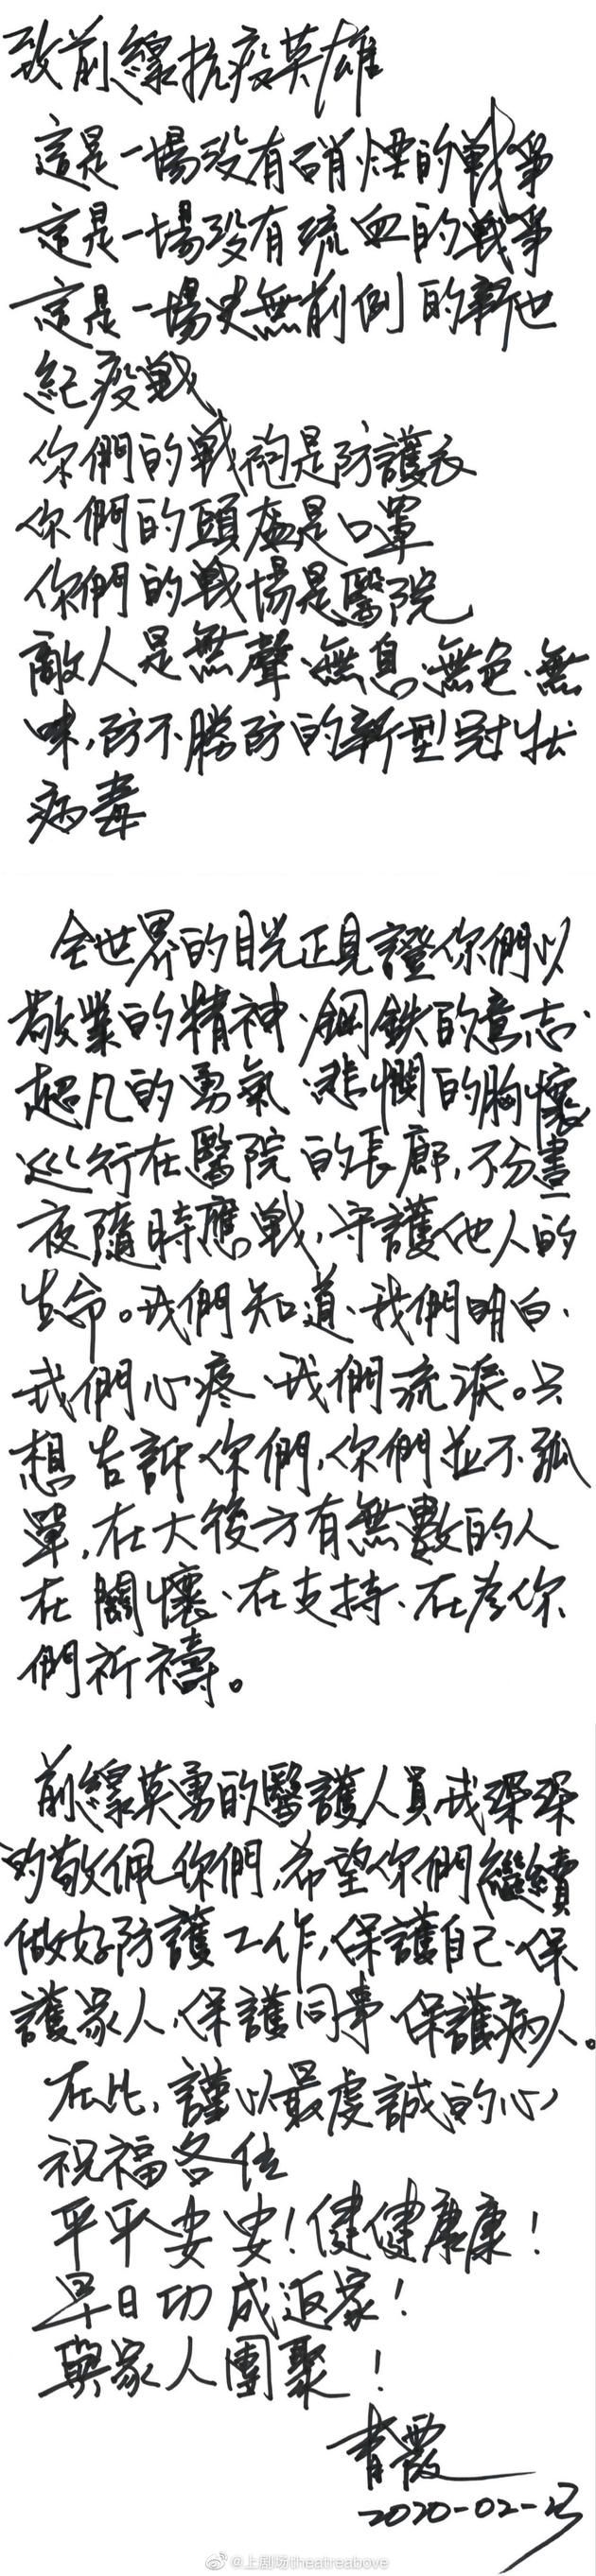 致前線抗疫英雄
這是一場没有硝煙的戰爭
這是一場没有流血的戰爭
這是一場史無前例的新世
紀疫戰
你們的戰袍是防護衣
你們的頭盔是口罩
你們的戰場是醫院
敵人是無聲、無息、無色、無
味，防不勝防的新型冠狀
病毒
全世界的目光正見證你們以
敬業的精神、鋼鐵的意志、
超凡的勇氣、悲憫的胸懷
巡行在醫院的長廊，不分晝
夜隨時應戰，守護他人的
生命。我們知道、我們明白、
我們心疼、我們流淚。只
想告訴你們，你們並不孤
單，在大後方有無數的人
在關懷、在支持、在為你
們祈禱。
前線英勇的醫護人員我深深
的敬佩你們，希望你們繼續
做好防護工作，保護自己、保
護家人、保護同事、保護病人。
在此，謹以最虔誠的心
祝福各位
平平安安！健健康康！
早日功成返家！
與家人團聚！
青霞
2020-02-
@上剧场theatreabove